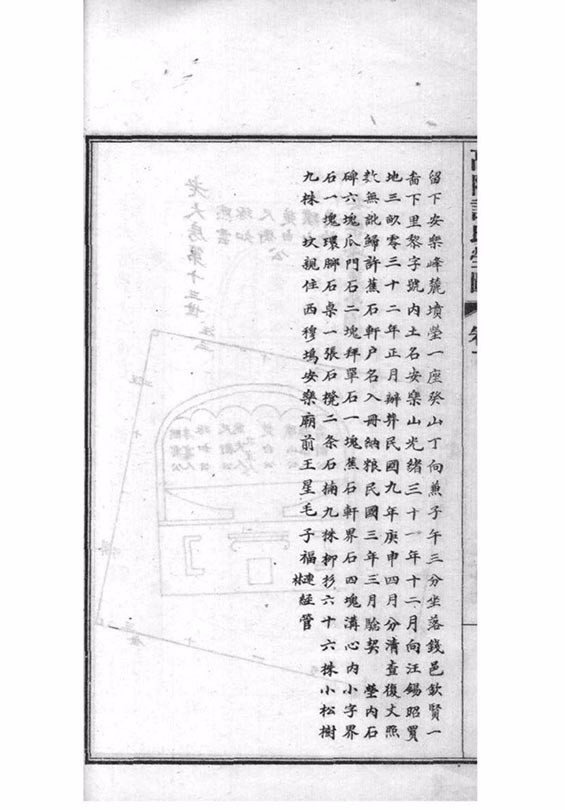 留下安樂峰麓墳塋一座癸山丁向兼子午三分坐落錢邑欽賢一
啚下里黎字號内土名安樂山光緒三十一年十二月向汪錫昭買
地三畝零三十二年正月辦葬民國九年庚申四月分清查復丈照
數無訛歸許蕉石軒户名入冊納粮民國三年三月驗契 塋内石
碑六塊瓜門石二塊拜單石一塊蕉石軒界石四塊溝心内小字界
石一塊環脚石桌一張石欖二条石楠九株柳杉六十六株小松樹
九株 坟親住西穆塢安樂廟前王星毛子福連經管
林
老大房第十三世